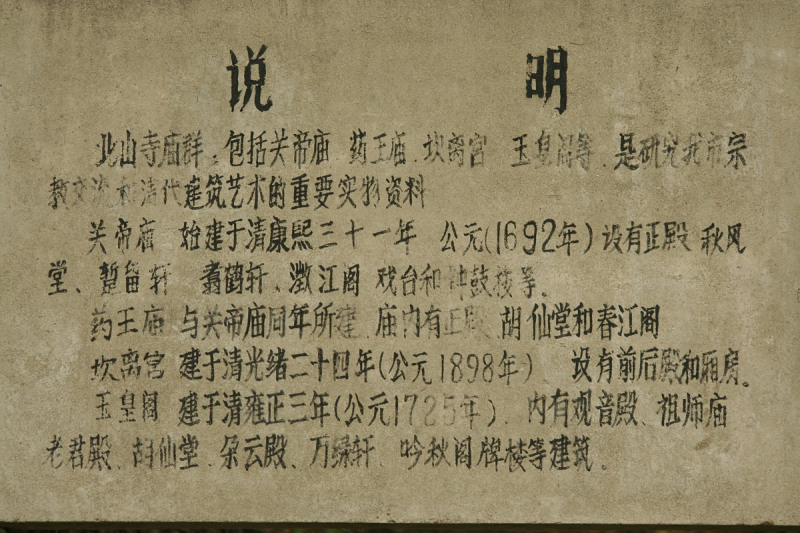 说 明
北山寺庙群：包括关帝庙、药王庙、坎离宫 玉皇阁等、是研究我市宗
教文流和清代建筑艺术的重要实物资料
关帝庙 始建于清康熙三十一年 公元(1692年)设有正殿、秋风
堂、暂留轩 翥鹤轩、澂江阁 戏台和钟鼓楼等、
药王庙 与关帝庙同年所建、庙内有正殿、胡仙堂和春江阁
坎离宫 建于清光绪二十四年(公元1898年) 设有前后殿和厢房。
玉皇阁 建于清雍正三年(公元1725年)、内有观音殿、祖师庙
老君殿、胡仙堂、朵云殿、万绿轩、吟秋阁牌楼等建筑。